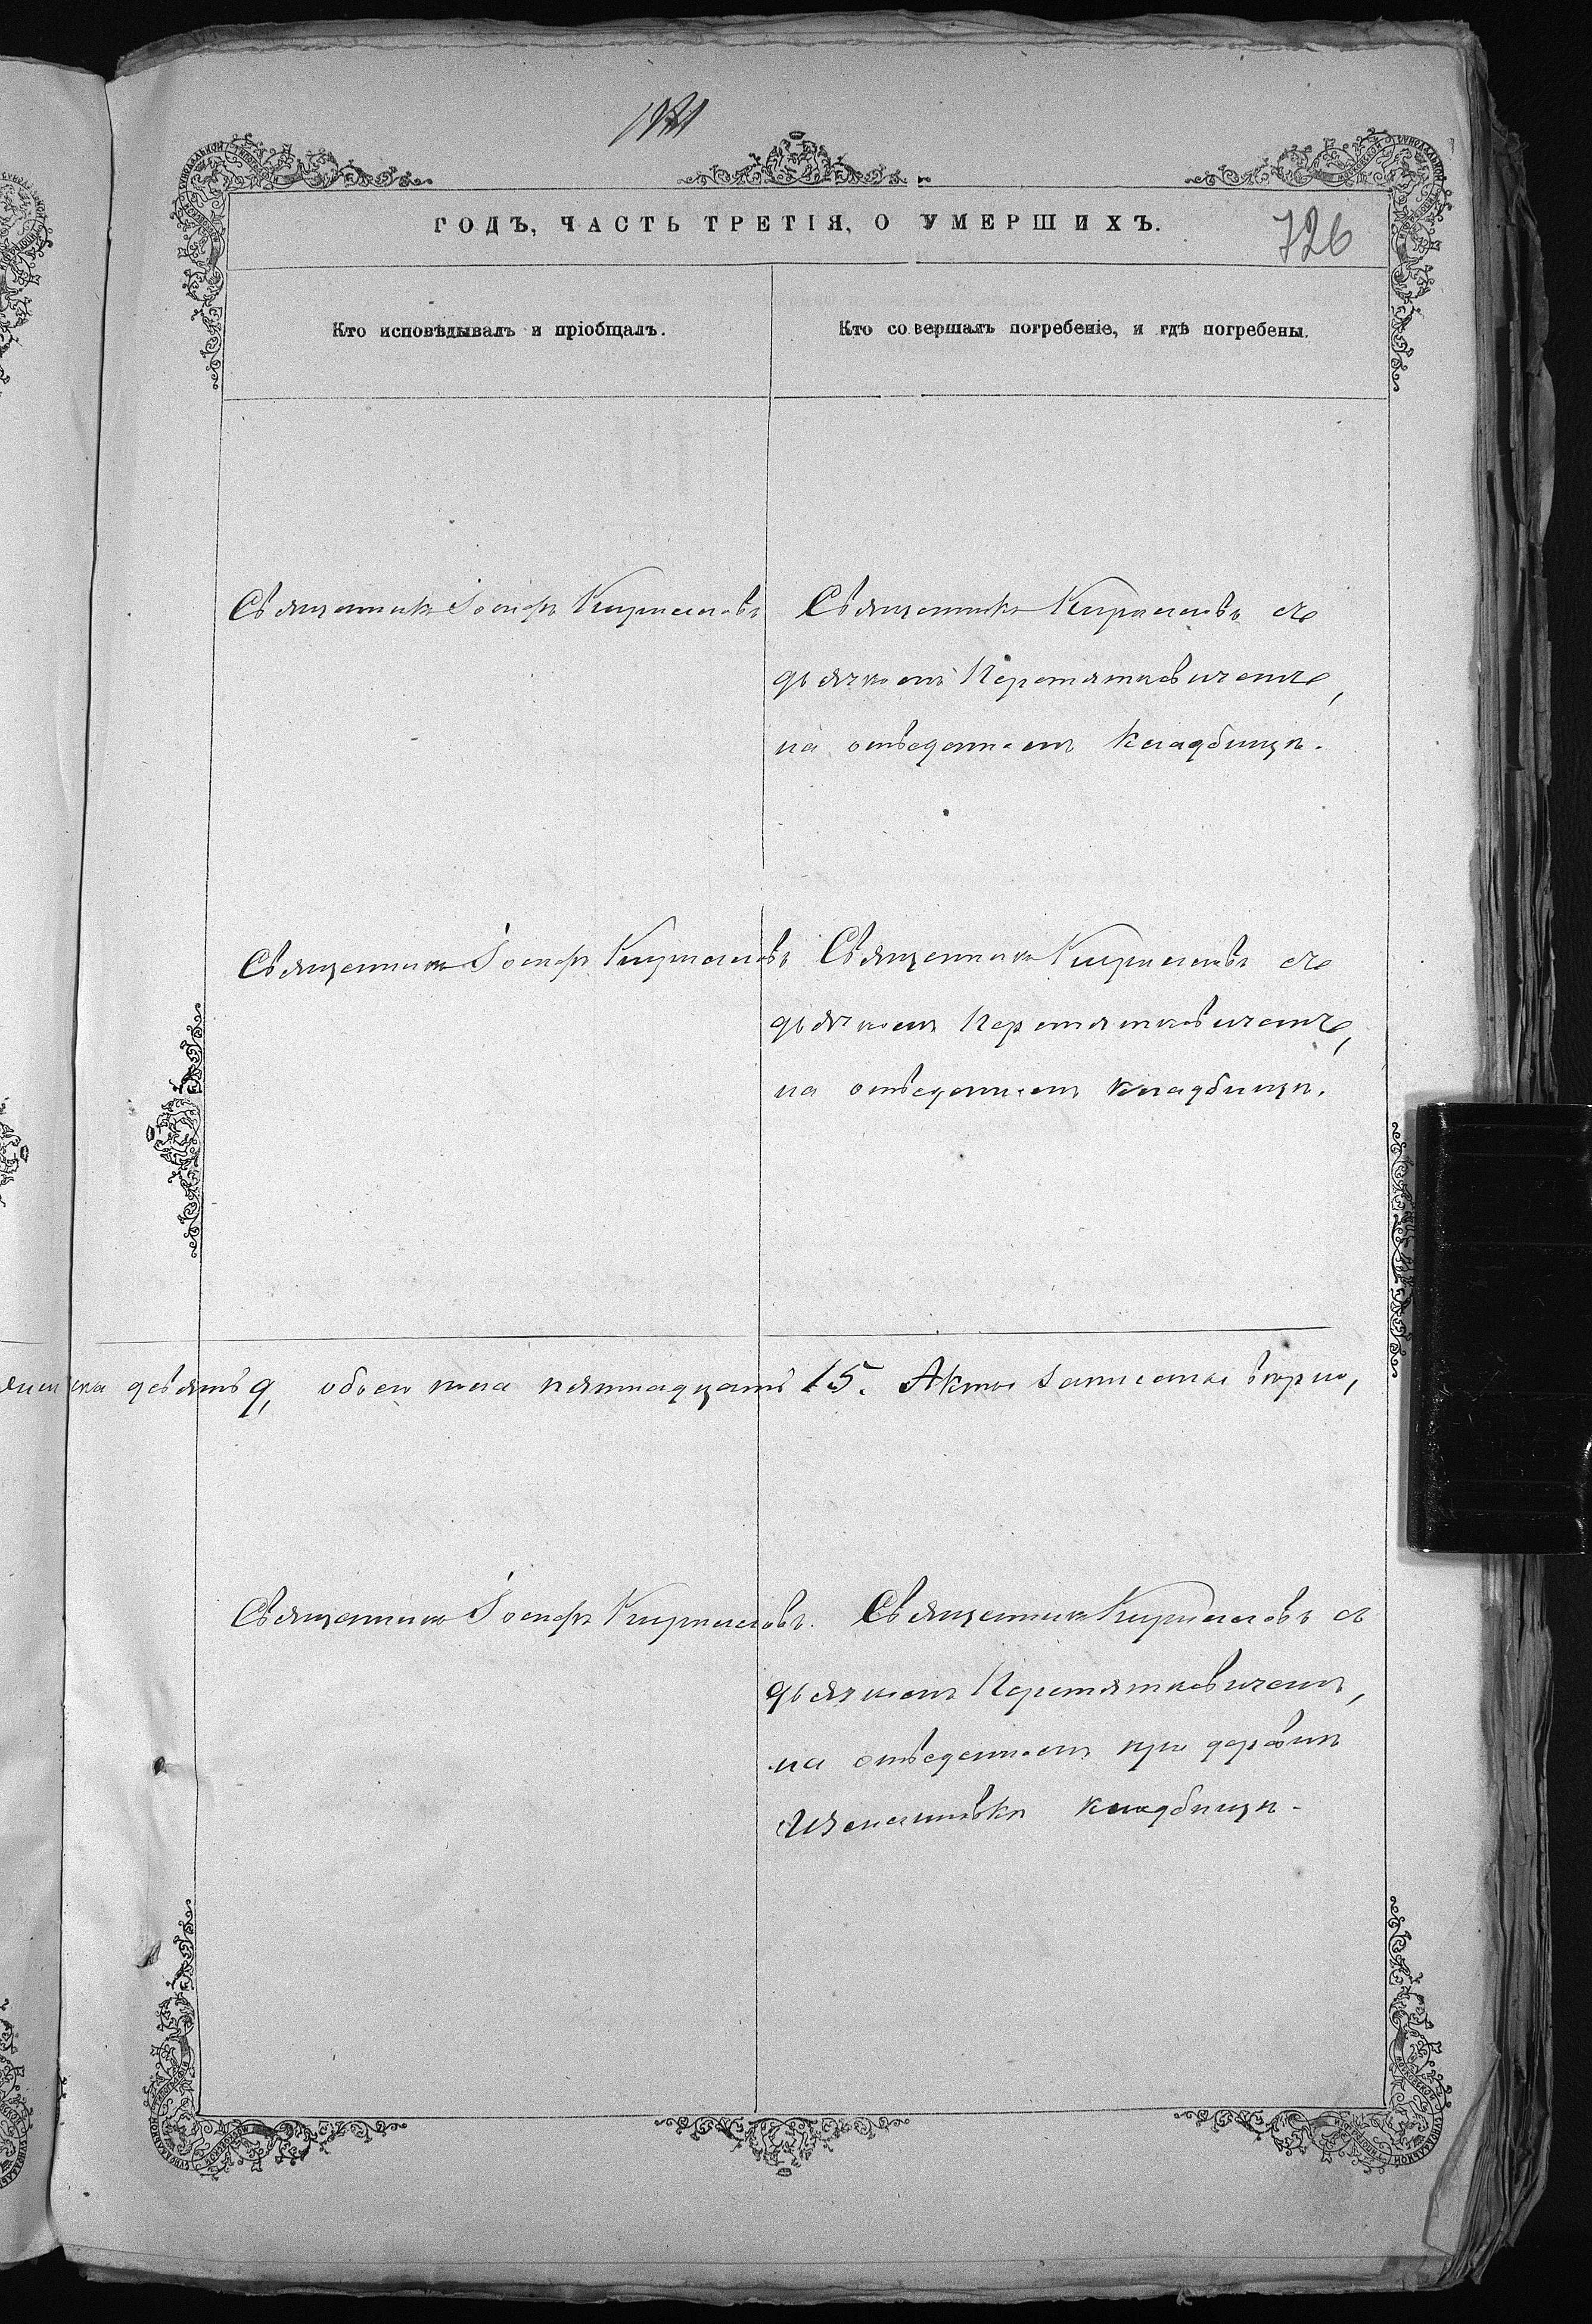 726
ГОДЪ, ЧАСТЬ ТРЕТІЯ, О УМЕРШИХЪ.
Кто исповѣдывалъ и пріобщалъ.
Кто совершалъ погребеніе, и гдѣ погребены.
Священникъ Іосифъ Кирилловъ
Священникъ Кирилловъ съ
дьячкомъ Перетятковичемъ,
на отведенномъ кладбищѣ.
Священникъ Іосифъ Кирилловъ
Священникъ Кирилловъ съ
дьячкомъ Перетятковичемъ,
на отведенномъ кладбищѣ.
девять 9, обоего пола пятнадцать 15. Акты записаны вѣрно,
Священникъ Іосифъ Кирилловъ.
Священникъ Кирилловъ съ
дьячкомъ Перетятковичемъ,
на отведенномъ при деревнѣ
кладбищѣ.